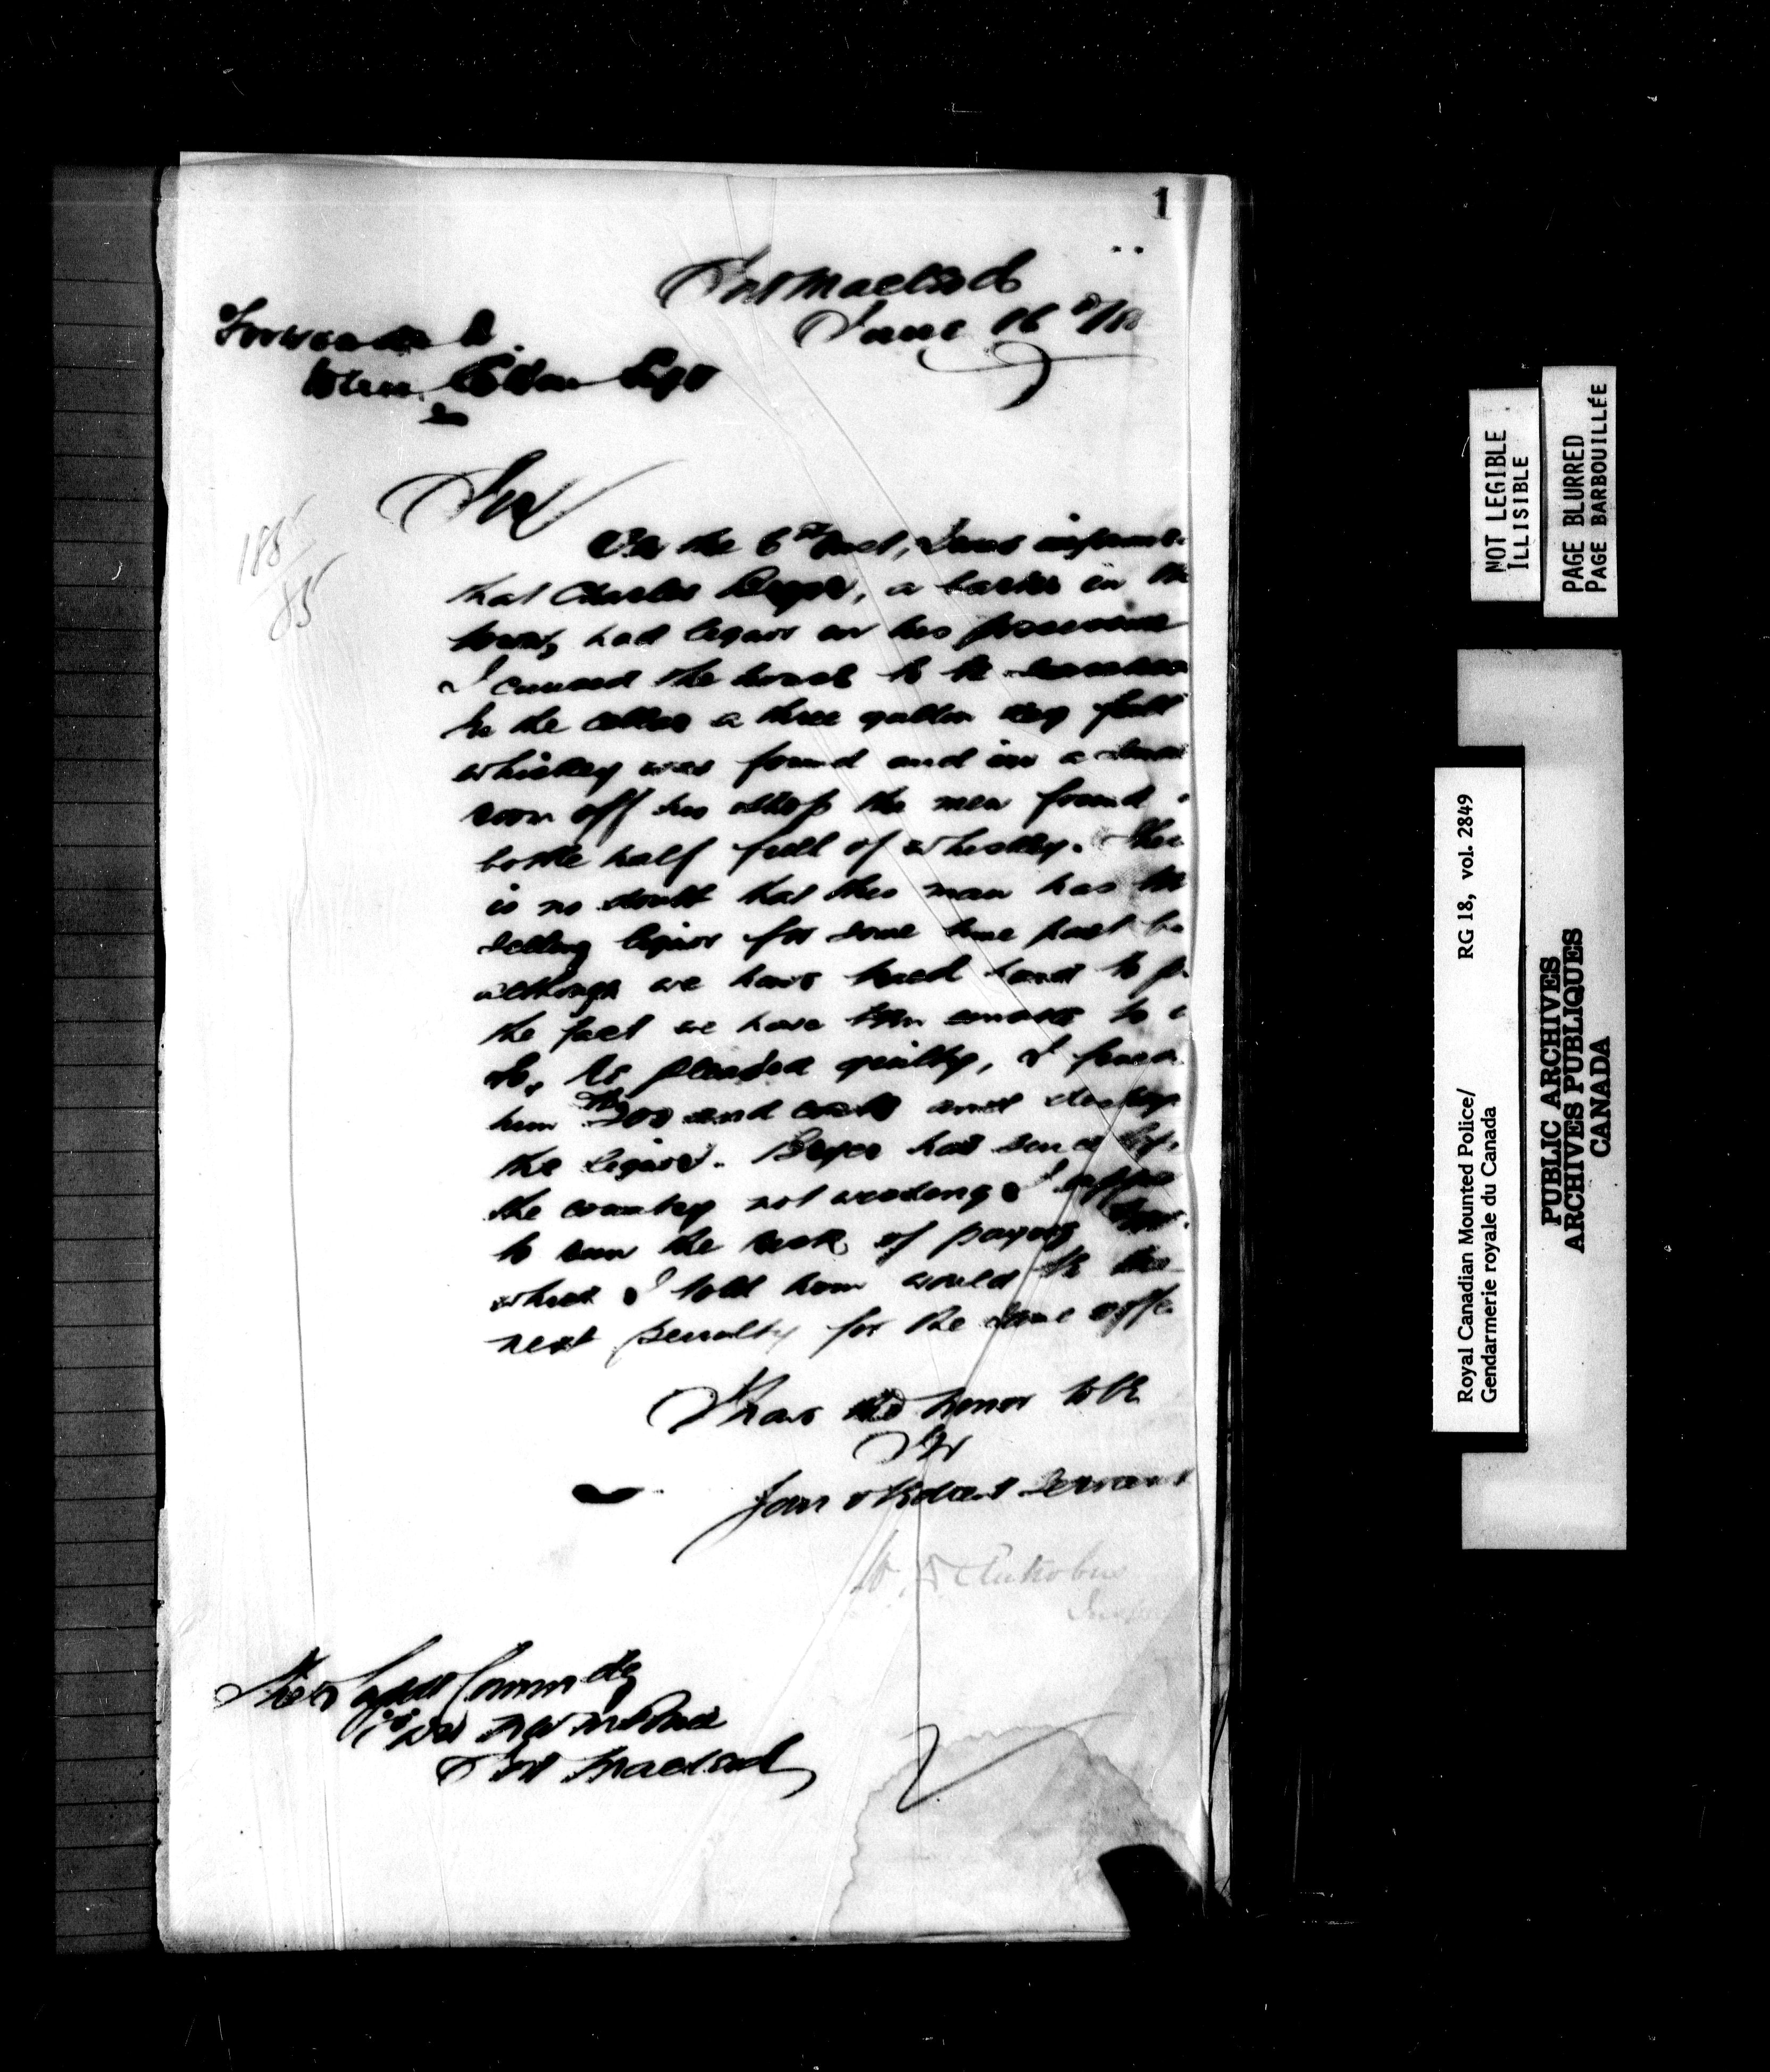 1
Fort Macleod
June 16
Forwarded
Sir
On the 6th inst, I was inform
that Charles Beyer, a barber in
town, had liquor in his possession
I caused the house to be
In the cellar a three gallon keg full
whiskey was found and in a small
room off his shop the men found
bottle half full of whiskey. Ther
is no doubt that this man has
selling liquor for some time past
although we have tried hard to
the fact we have been unable to
do, he pleaded guilty, I fined
him 200 and costs and destroy
the liquor. Beyer has since
the country not wishing I
to run the risk of paying
which I told him would be the
next penalty for the same offe
I have the honor to be
Sir
Your obedient Servant
W. D. Antrobus
The Supdt Commdg
N W M Police
Fort Macleod
188
85
NOT LEGIBLE
ILLISIBLE
PAGE BLURRED
PAGE BARBOUILLÉE
Royal Canadian Mounted Police/ RG 18, vol. 2849
Gendarmerie royale du Canada
PUBLIC ARCHIVES
ARCHIVES PUBLIQUES
CANADA